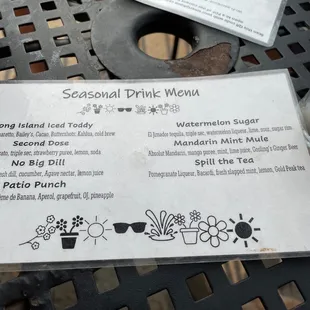 Seasonal Drink Menu
ong Island Iced Toddy
Bailey's, Cacao, Buttershots, Kahlua, cold brew
Second Dose
triple sec, strawberry puree, lemon, soda
No Big Dill
fresh dill, cucumber, Agave nectar, lemon juice
Patio Punch
de Banana, Aperol, grapefruit, OJ, pineapple
Watermelon Sugar
El Jimador tequila, triple sec, watermelon liqueur, lime, sour
Mandarin Mint Mule
Absolut Mandarin, mango puree, mint, lime juice, Gosling's Ginger Beer
Spill the Tea
Pomegranate Liqueur, Bacardi, fresh slapped mint, lemon, Gold Peak tea